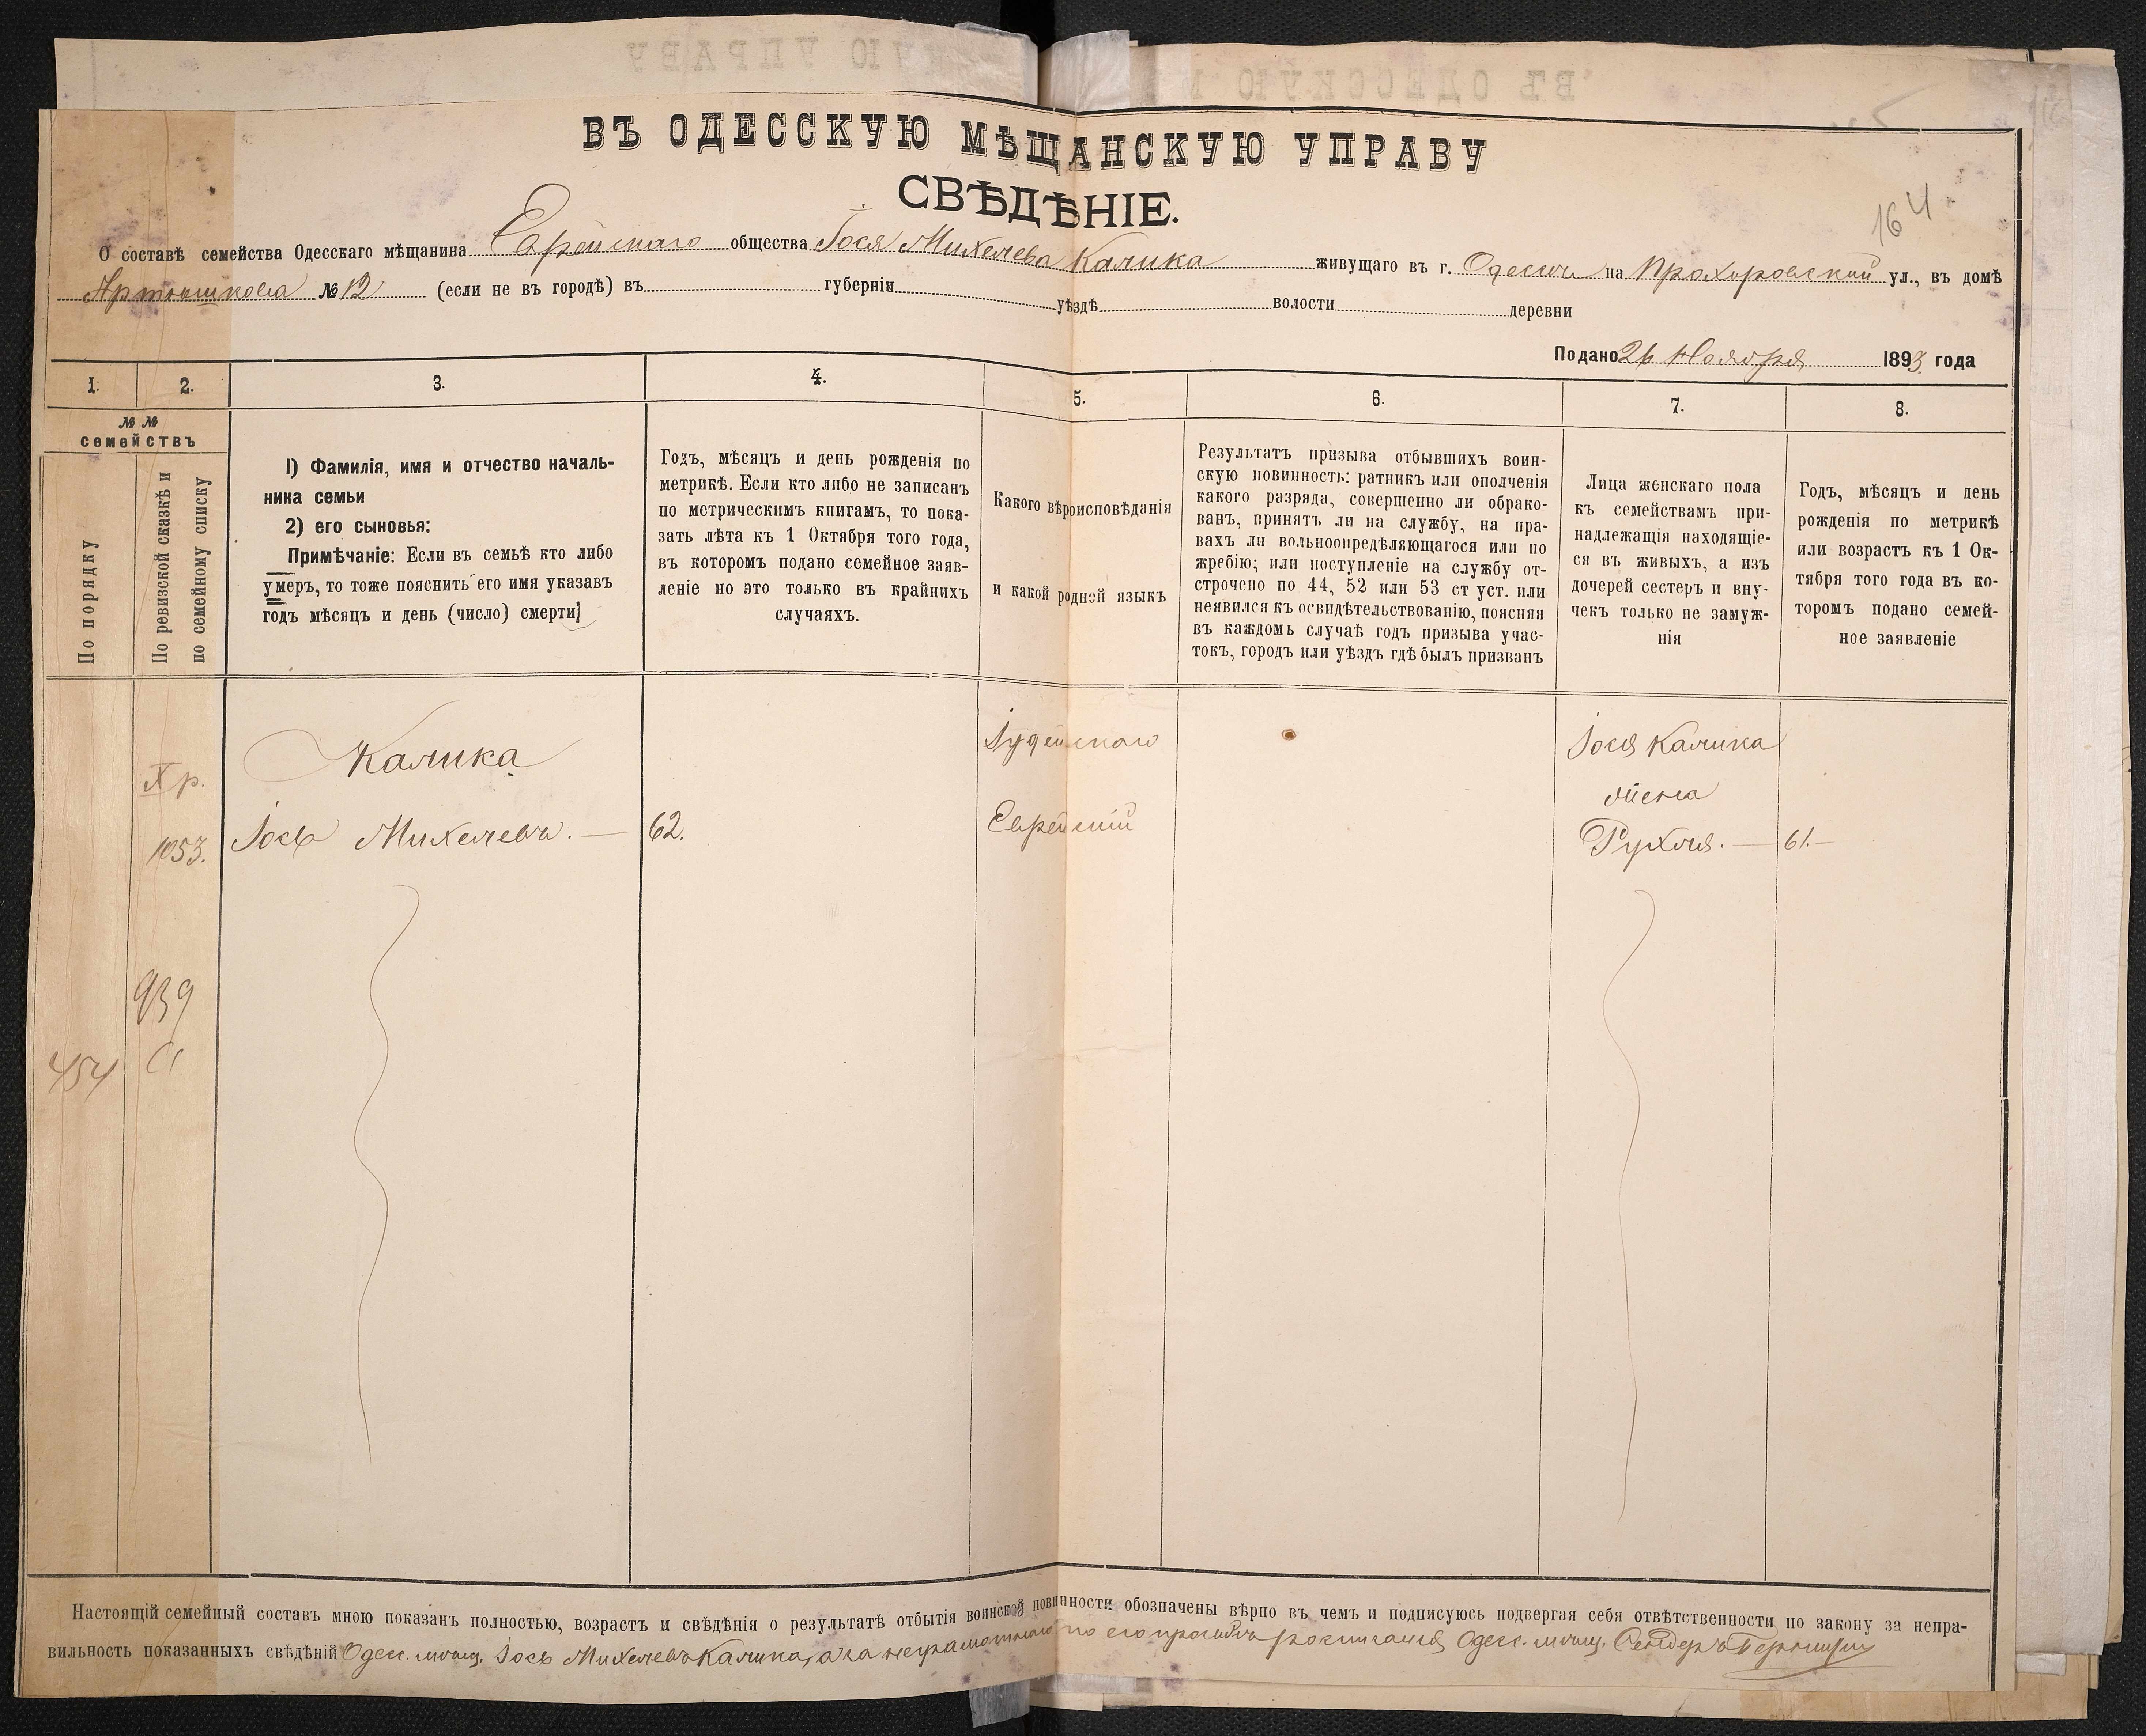 ВЪ ОДЕССКУЮ МѢЩАНСКУЮ УПРАВУ
СВѢДѢНІЕ.
164
О составѣ семейства Одесскаго мѣщанина Еврейскаго общества Іося Михелева Калика живущаго въ г. Одессѣ на Прохоровской ул., въ домѣ
№ 12 (если не въ городѣ) въ губерніи уѣздѣ волости деревни
Подано 26 Ноября 1893 года
1. 2. 3. 4. 5. 6. 7. 8.
№ №
семействъ
По порядку
По ревизской сказкѣ и
по семейному списку
1) Фамилія, имя и отчество началь-
ника семьи
2) его сыновья:
Примѣчаніе: Если въ семьѣ кто либо
умеръ, то тоже пояснить его имя указавъ
годъ мѣсяцъ и день (число) смерти
Годъ, мѣсяцъ и день рожденія по
метрикѣ. Если кто либо не записанъ
по метрическимъ книгамъ, то пока-
зать лѣта къ 1 Октября того года,
въ которомъ подано семейное заяв-
леніе но это только въ крайнихъ
случаяхъ.
Какого вѣроисповѣданія
и какой родной языкъ
Результатъ призыва отбывшихъ воин-
скую повинность: ратникъ или ополченія
какого разряда, совершенно ли обрако-
ванъ, принятъ ли на службу, на пра-
вахъ ли вольноопредѣляющагося или по
жребію; или поступленіе на службу от-
строчено по 44, 52 или 53 ст уст. или
неявился къ освидѣтельствованію, поясняя
въ каждомъ случаѣ годъ призыва учас-
токъ, городъ или уѣздъ гдѣ былъ призванъ
Лица женскаго пола
къ семействамъ при-
надлежащія находящіе-
ся въ живыхъ, а изъ
дочерей сестеръ и вну-
чекъ только не замуж-
нія
Годъ, мѣсяцъ и день
рожденія по метрикѣ
или возрастъ къ 1 Ок-
тября того года въ ко-
торомъ подано семей-
ное заявленіе
Калика
Іудейскаго
Іося Калика
Хр.
жена
1053. Іось Михелевъ. — 62.
Еврейскій
Рухля. — 61. —
939
454
Настоящій семейный составъ мною показанъ полностью, возрастъ и свѣдѣнія о результатѣ отбытія воинской повинности обозначены вѣрно въ чемъ и подписуюсь подвергая себя отвѣтственности по закону за непра-
вильность показанныхъ свѣдѣній Одесс. мѣщ. Іось Михелевъ Калика, а за неграмотнаго по его просьбѣ росписался Одесс. мѣщ.